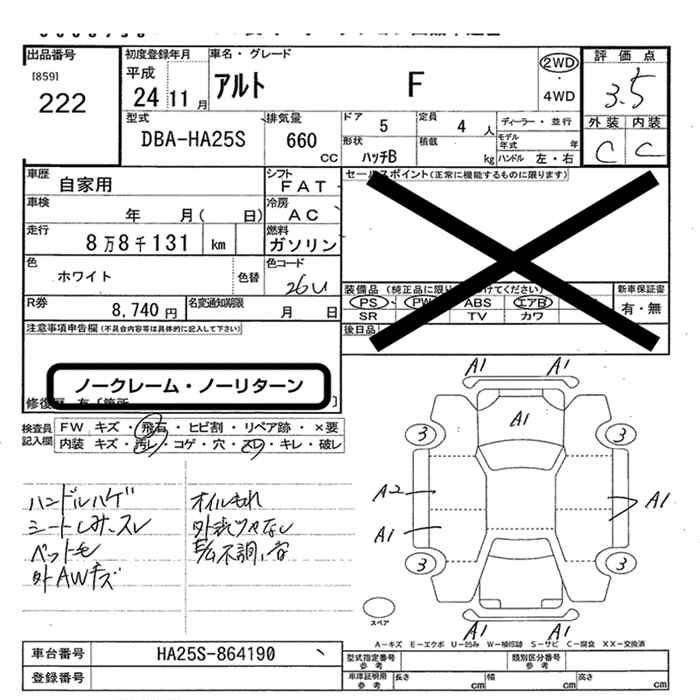 出品番号
[859]
222
初度登録年月
平成
24 11 月
車名・グレード
アルト F
2WD
・
4WD
評価点
3.5
外装 内装
C C
型式
DBA-HA25S
排気量
660
CC
ドア 5
定員 4 人
ディーラー・並行
モデル年式 年
形状
ハッチB
積載 kg
ハンドル 左・右
車歴
自家用
シフト
FAT
セールスポイント(正常に機能するものに限ります)
車検
年 月( 日)
冷房
AC
走行
8万8千131 km
燃料
ガソリン
色
ホワイト
色替
色コード
26U
装備品 (純正品に限り
けてください)
PS PW ABS エアB
SR TV カワ
新車保証書
有・無
後日品
R券
8,740 円
名変通知期限
月 日
注意事項申告欄(不具合内容等は具体的に記入して下さい)
ノークレーム・ノーリターン
検査員記入欄
FW キズ・飛石・ヒビ割・リペア跡・×要
内装 キズ・汚レ・コゲ・穴・スレ・キレ・破レ
ハンドルハゲ
シートしみ、スレ
ペットモ
外AWキズ
オイルもれ
A1 A1
A1
3 3
A2
A1
A1
3 3
A1 A1
スペア
A-キズ E-エクボ U-凹み W-補修跡 S-サビ C-腐食 XX-交換済
車台番号
HA25S-864190
登録番号
型式指定番号
参考
類別区分番号
参考
車庫証明用
参考
長さ cm
幅 cm
高さ cm